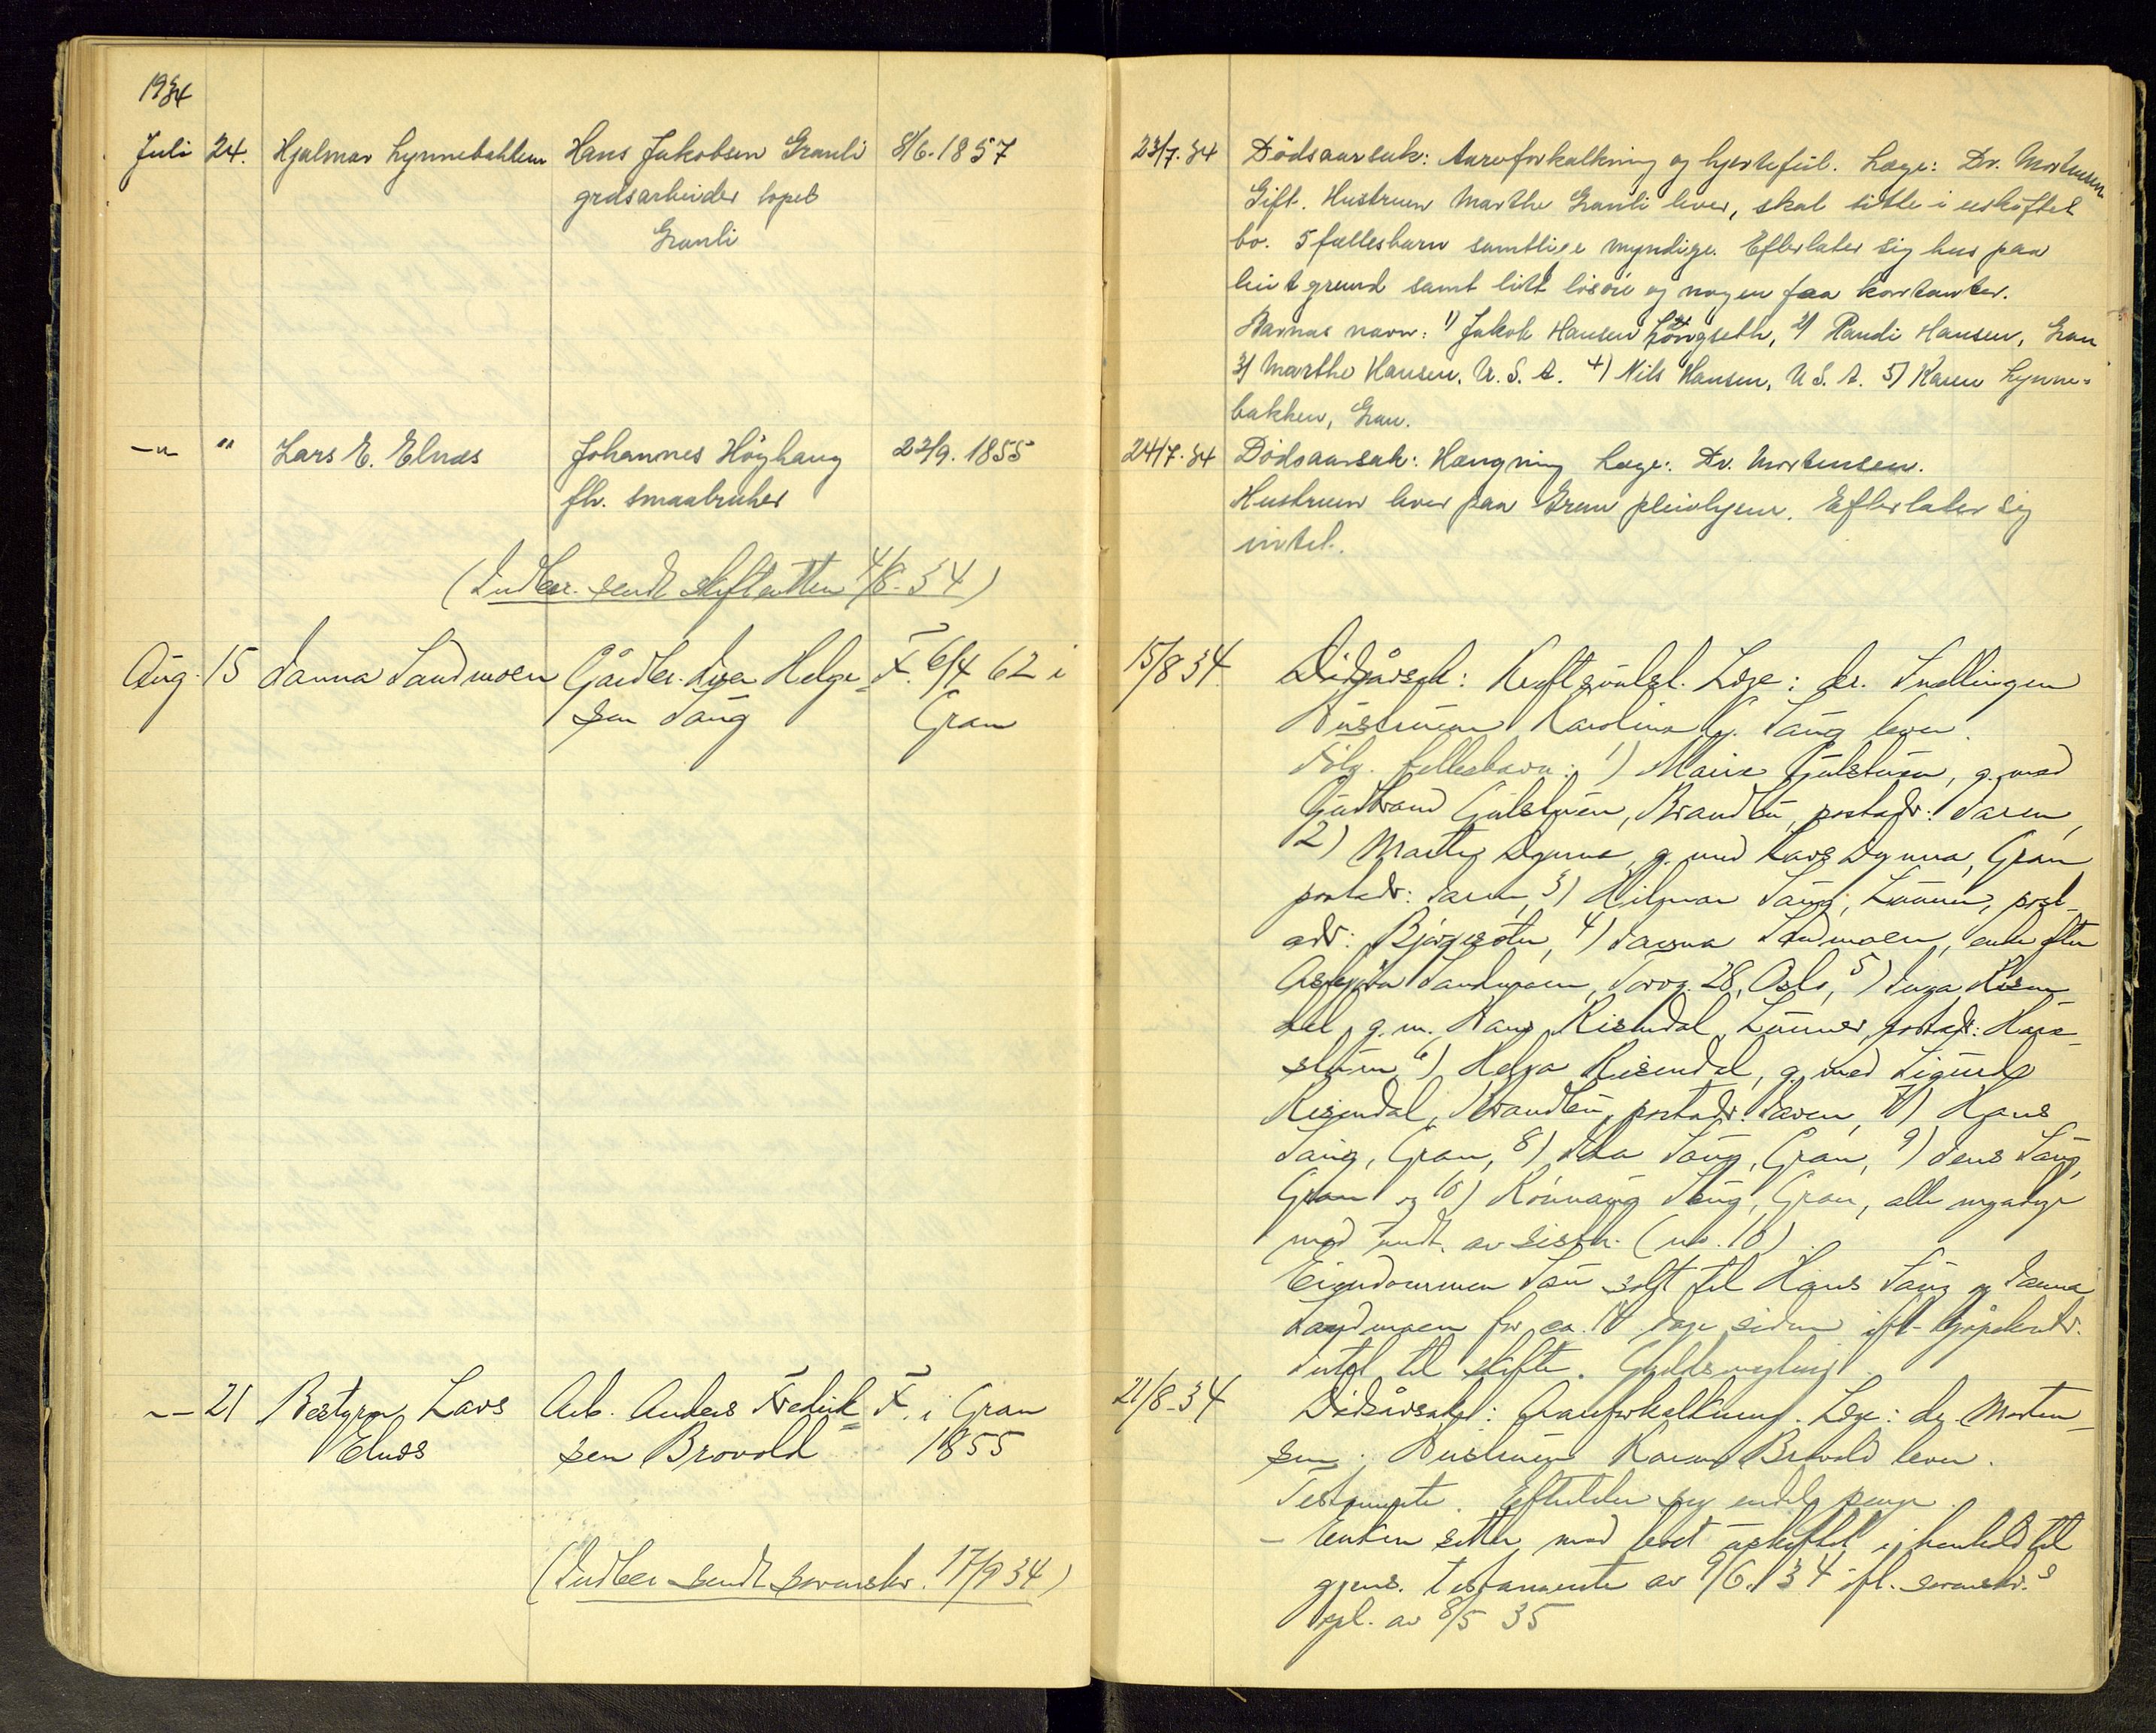 1934
Juli 24. Hjalmar Lynnebakken Hans Jakobsen Granli 8/6.1857
grdsarbeider
Granli
23/7.34 Dödsaarsak: Aareforkalkning og hjertefeil. Læge: Dr. Mortensen
Gift. Hustruen Marthe Granli lever, skal sitte i uskiftet
bo. 5 fællesbarn samtlige myndige. Efterlater sig hus paa
leiet grund samt litt lösöre og nogen faa kontanter.
Barnas navn: 1) Jakob Hansen 2) Randi Hansen, Gran
3) Marthe Hansen, U.S.A. 4) Nils Hansen, U.S.A. 5) Karen Lynne-
bakken, Gran.
-"- " Lars E. Elnæs Johannes Höghaug 22/9.1855
fh. smaabruker
24/7.34 Dödsaarsak: Hængning Læge: Dr. Mortensen.
Hustruen lever paa Gran pleiehjem. Efterlater sig
intet.
(Indber. sendt skifteretten 4/8-34)
Aug. 15 Janna Sandmoen Gårdbr. Iver Helge- F. 6/4 62 i
sen Taug Gran
15/8 34 Dödsårsak: Kreftsvulst. Læge: dr. Snellingen
Hustruen Karoline G. Taug lever.
Fölg. fellesbarn: 1) Marie Gulstuen, g. med
Gudbrand Gulstuen, Brandbu, postadr: Jaren,
2) Marthe Dynna, g. med Lars Dynna, Gran,
postadr: Jaren, 3) Hilmar Taug, Lunner, post-
adr: Bjørgeseter, 4) Janna Sandmoen, enke efter
Sandmoen, 28, Oslo, 5) Inga Risen-
dal, g.m. Hans Risendal, Lunner, postadr: Hare-
stuen 6) Helga Risendal, g. med Sigurd
Risendal, Brandbu, postadr. Jaren, 7) Hans
Taug, Gran, 8) Taug, Gran, 9) Jens Taug,
Gran og 10) Rönnaug Taug, Gran, alle myndige
med undt. av sistn. (nr. 10).
Eiendommen Taug solgt til Hans Taug og Janna
Sandmoen for ca. 14 dage siden ifl. kjöpekontr.
Intet til skifte.
-"- 21 Bestyrer Lars Arb. Anders Fredrik- F. i Gran
Elnæs sen Brovold 1855
21/8-34 Dödsårsak: Åreforkalkning. Læge: dr. Morten-
sen. Hustruen Karen Brovold lever.
Testamente. Efterlater sig endel penge.
- Enken sitter med boet uskiftet i henhold til
gjens. testamente av 9/6.34 ifl. sorenskr.s
av 8/5 35
(Indber. sendt sorenskr. 17/9 34)